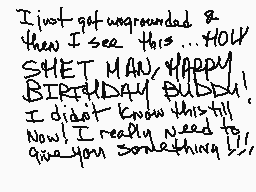 I just got ungrounded &
then I see this...HOLY
SHET MAN, HAPPY
BIRTHDAY BUDDY!
I didn't know this till
Now! I really need to
give you something!!!